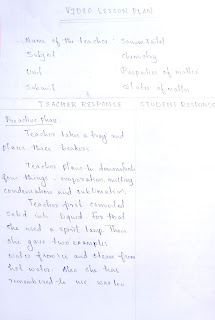 VIDEO LESSON PLAN
Name of the teacher :
Subject Chemistry
Unit Properties of matter
Subunit States of matter
TEACHER RESPONSE STUDENT RESPONSE
Teacher takes a tray and
places three beakers.
Teacher plans to demonstrate
four things - evaporation, melting
condensation and sublimation.
Teacher first converted
solid into liquid. For that
she used a spirit lamp. Then
she gave two examples
water from ice and steam from
hot water. Also she has
remembered to use